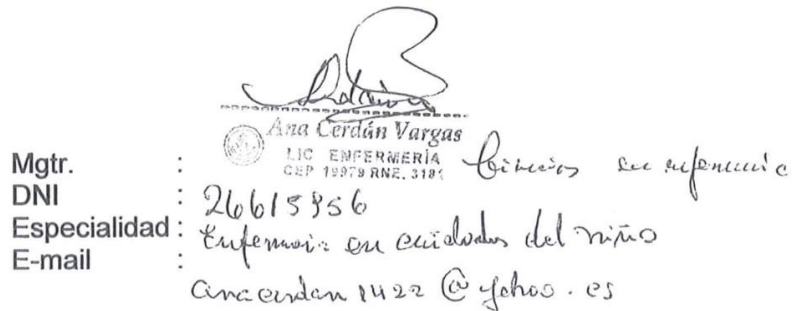 Ana Cerdán Vargas
LIC ENFERMERÍA
CEP 19979 RNE. 3181
Mgtr. : Ciencias en enfermería
DNI : 26615956
Especialidad : Enfermería en cuidados del niño
E-mail :
anacerdan1422@yahoo.es